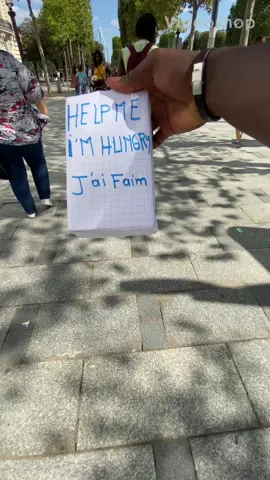 HELP ME
I'M HUNGRY
J'ai Faim